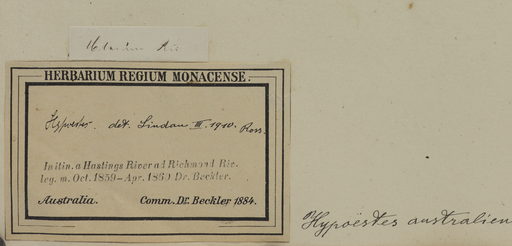 HERBARIUM REGIUM MONACENSE.
Hypoestes. det. Lindau III. 1910. Ross.
In itin. a Hastings River ad Richmond Riv.
leg. m. Oct. 1859–Apr. 1860 Dr. Beckler.
Australia. Comm. Dr. Beckler 1884.
Hypoëstes australien